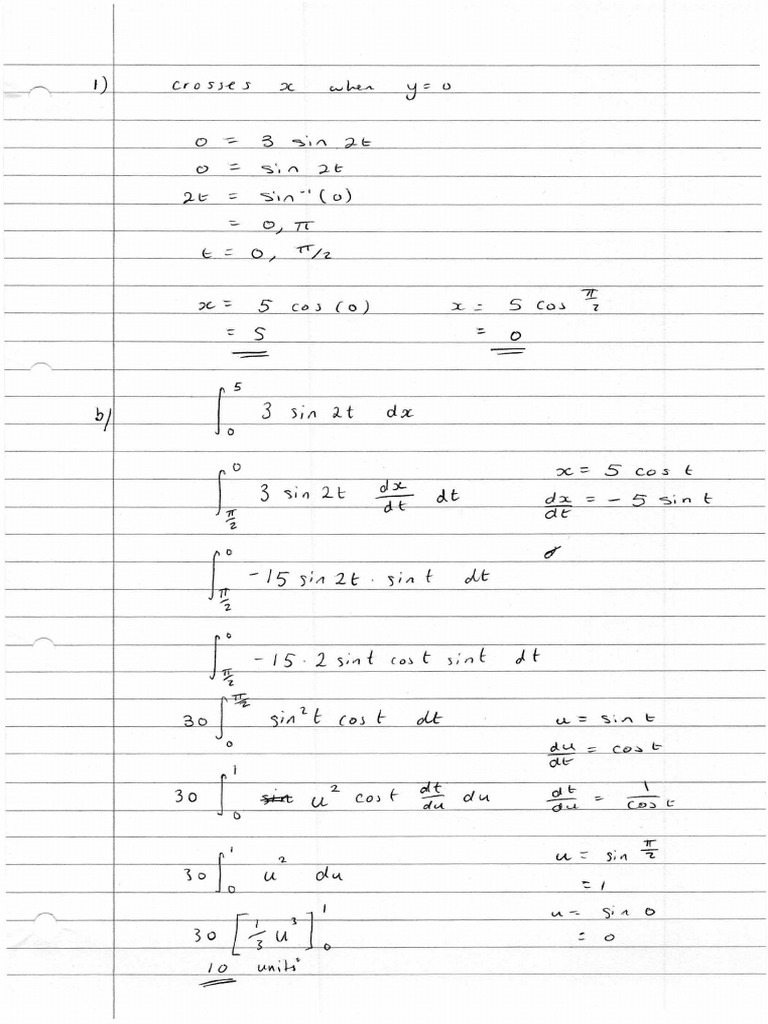 1) crosses x when y = 0
0 = 3 sin 2t
0 = sin 2t
2t = sin⁻¹(0)
= 0, π
t = 0, π/2
x = 5 cos(0) x = 5 cos π/2
= 5 = 0
b/ ∫₀⁵ 3 sin 2t dx
∫_{π/2}^{0} 3 sin 2t dx/dt dt x = 5 cos t
dx/dt = - 5 sin t
∫_{π/2}^{0} -15 sin 2t · sin t dt
∫_{π/2}^{0} -15 · 2 sin t cos t sin t dt
30 ∫_{0}^{π/2} sin² t cos t dt u = sin t
du/dt = cos t
30 ∫₀¹ u² cos t dt/du du dt/du = 1/cos t
30 ∫₀¹ u² du u = sin π/2
= 1
30 [1/3 u³]₀¹ u = sin 0
= 0
10 units²